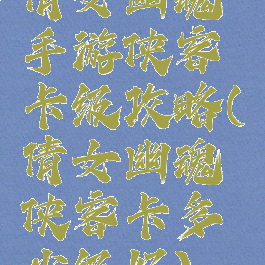 倩女幽魂
手游侠客
卡级攻略(
倩女幽魂
侠客卡多